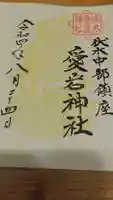 中部鎮座
愛宕神社
令和四年八月二十四日